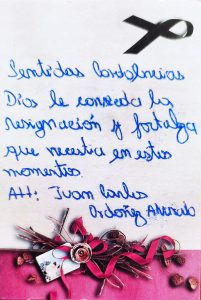 Sentidas Condolencias
Dios le conceda la
resignación y fortaleza
que necesita en estos
momentos.
Att: Juan Carlos
Ordoñez Alvarado